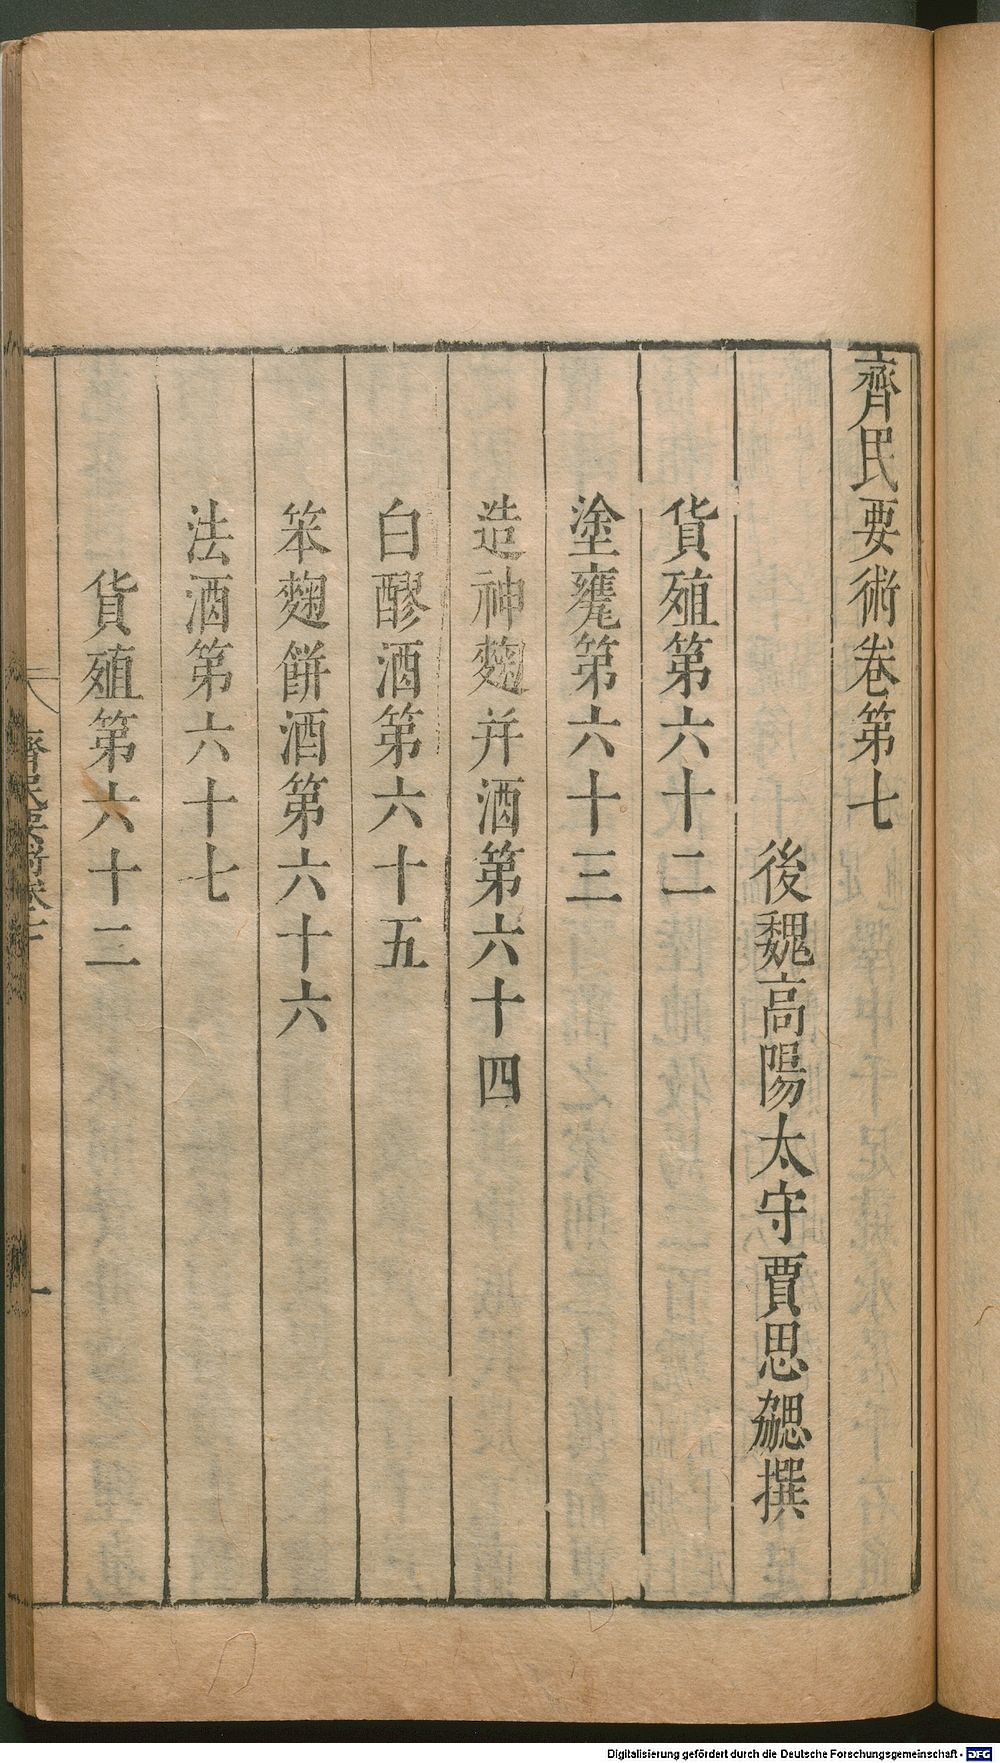 齊民要術卷第七
後魏高陽太守賈思勰撰
貨殖第六十二
塗甕第六十三
造神麴并酒第六十四
白醪酒第六十五
笨麴餅酒第六十六
法酒第六十七
貨殖第六十二
齊民要術卷七
一
Digitalisierung gefördert durch die Deutsche Forschungsgemeinschaft - DFG